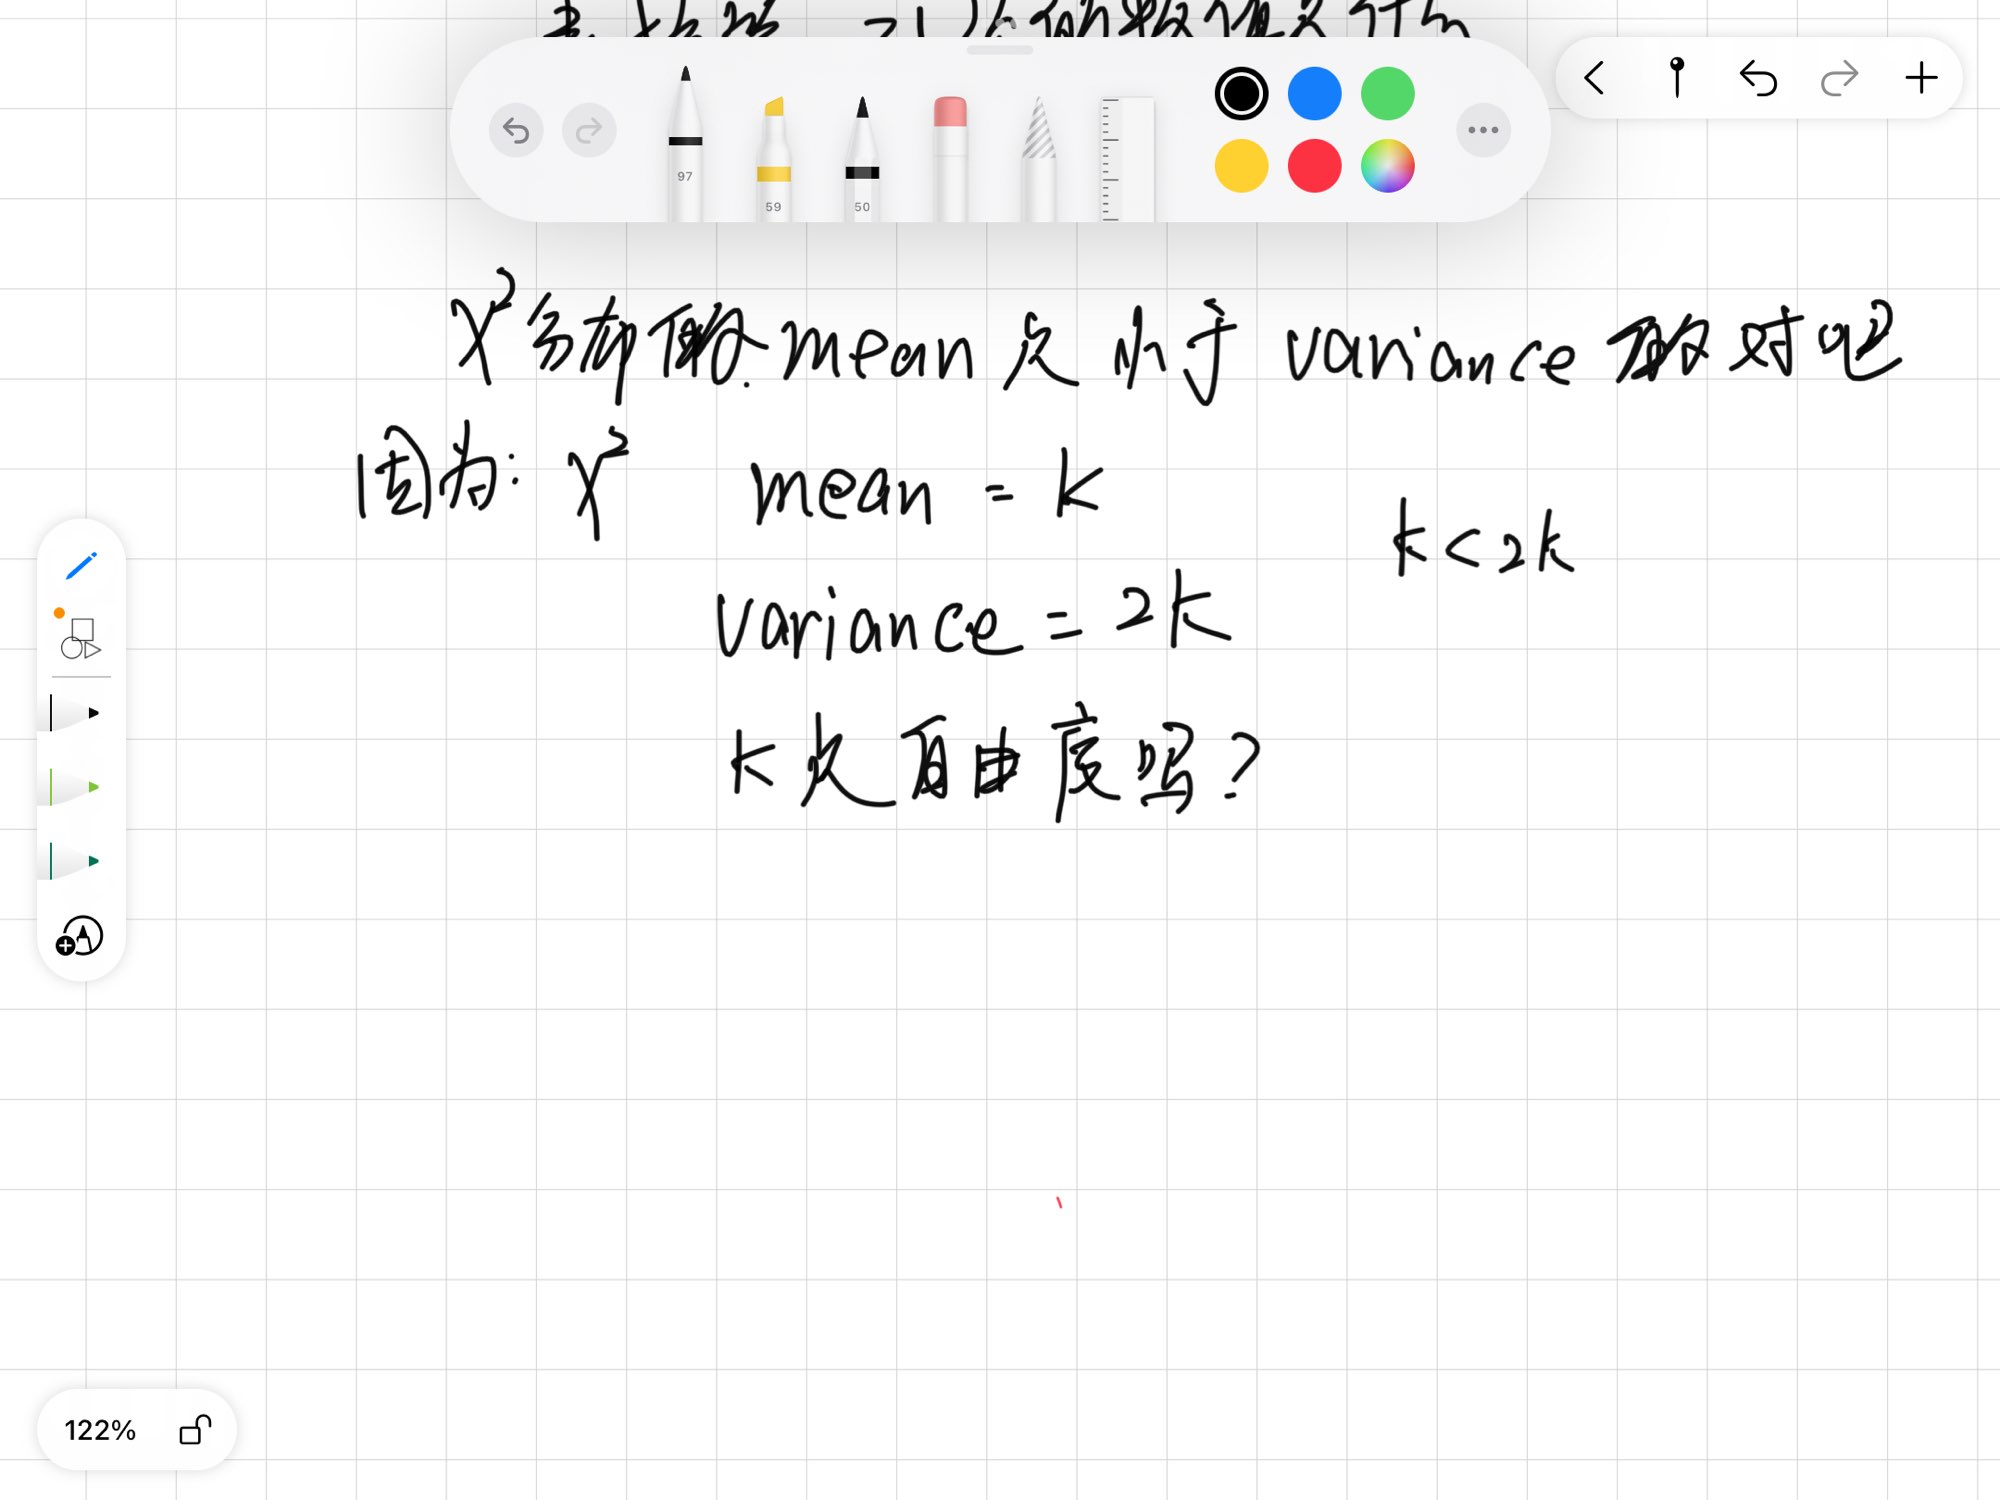 97
59
50
χ²分布 做. mean 是 小于 variance 的 对吧
因为: χ² mean = k
k < 2k
variance = 2k
k 是 自由度吗?
122%